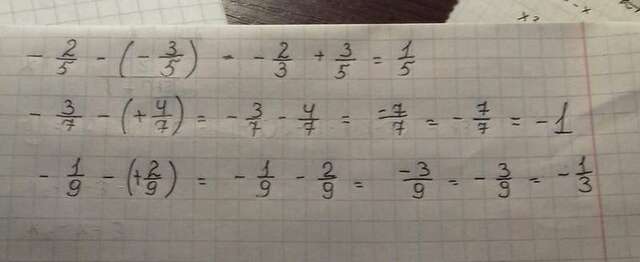 - 2/5 - (- 3/5) - - 2/3 + 3/5 = 1/5
- 3/7 - (+ 4/7) = - 3/7 - 4/7 = -7/7 = - 7/7 = -1
- 1/9 - (+ 2/9) = - 1/9 - 2/9 = -3/9 = - 3/9 = - 1/3